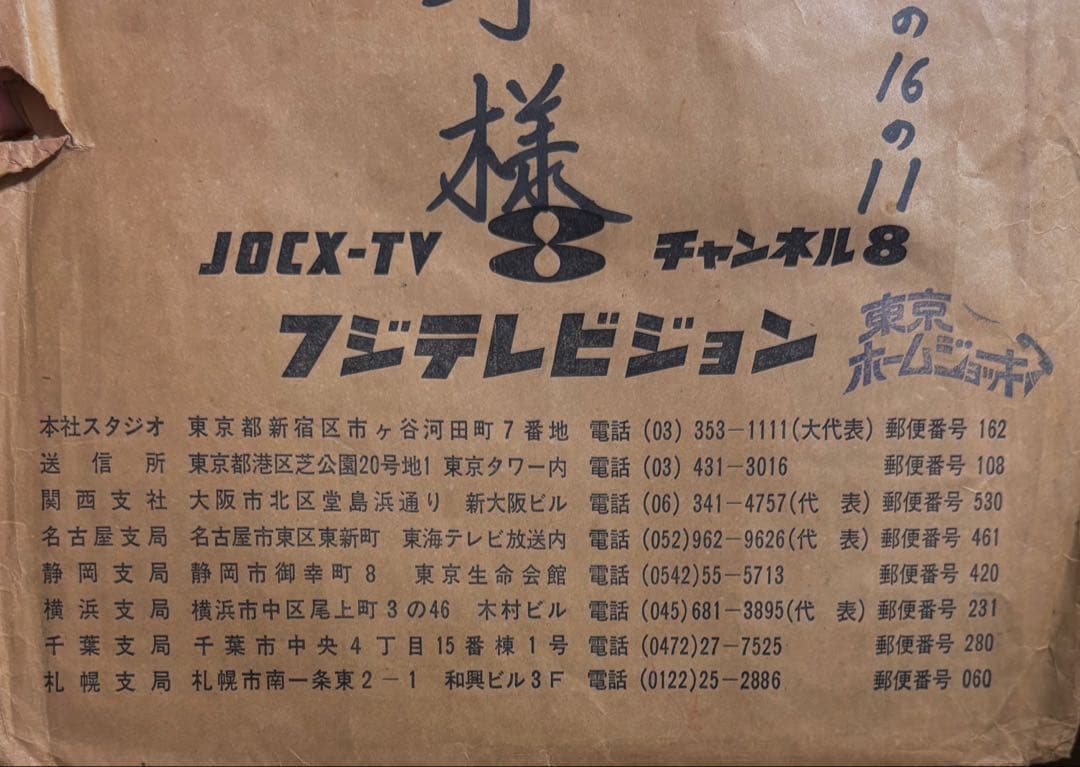 の16の11
様
JOCX-TV 8 チャンネル8
フジテレビジョン
東京
ホームジョッキー
本社スタジオ 東京都新宿区市ヶ谷河田町7番地 電話 (03) 353-1111(大代表) 郵便番号 162
送信所 東京都港区芝公園20号地1 東京タワー内 電話 (03) 431-3016 郵便番号 108
関西支社 大阪市北区堂島浜通り 新大阪ビル 電話 (06) 341-4757(代 表) 郵便番号 530
名古屋支局 名古屋市東区東新町 東海テレビ放送内 電話 (052)962-9626(代 表) 郵便番号 461
静岡支局 静岡市御幸町8 東京生命会館 電話 (0542)55-5713 郵便番号 420
横浜支局 横浜市中区尾上町3の46 木村ビル 電話 (045)681-3895(代 表) 郵便番号 231
千葉支局 千葉市中央4丁目15番棟1号 電話 (0472)27-7525 郵便番号 280
札幌支局 札幌市南一条東2-1 和興ビル3F 電話 (0122)25-2886 郵便番号 060